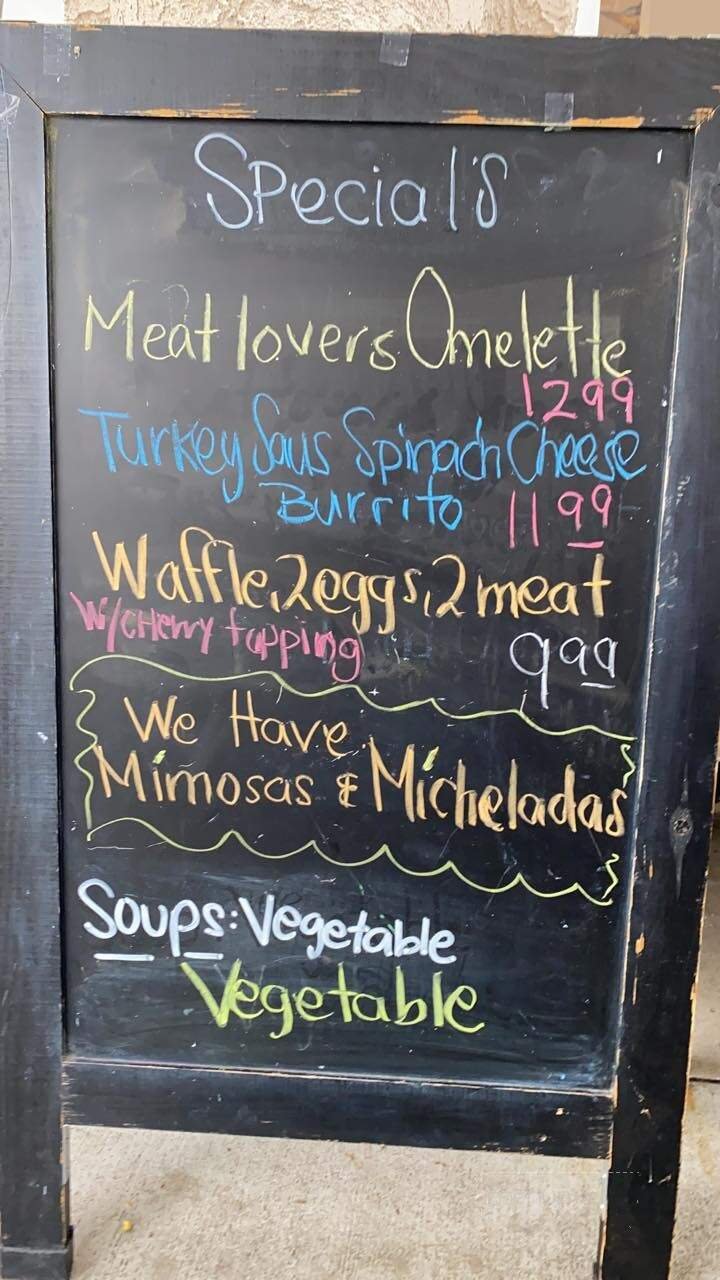 Special's
Meat lovers Omelette
1299
Turkey Saus Spinach Cheese
Burrito 1199
Waffle, 2 eggs, 2 meat
W/CHerry tapping
999
We Have
Mimosas & Micheladas
Soups: Vegetable
Vegetable